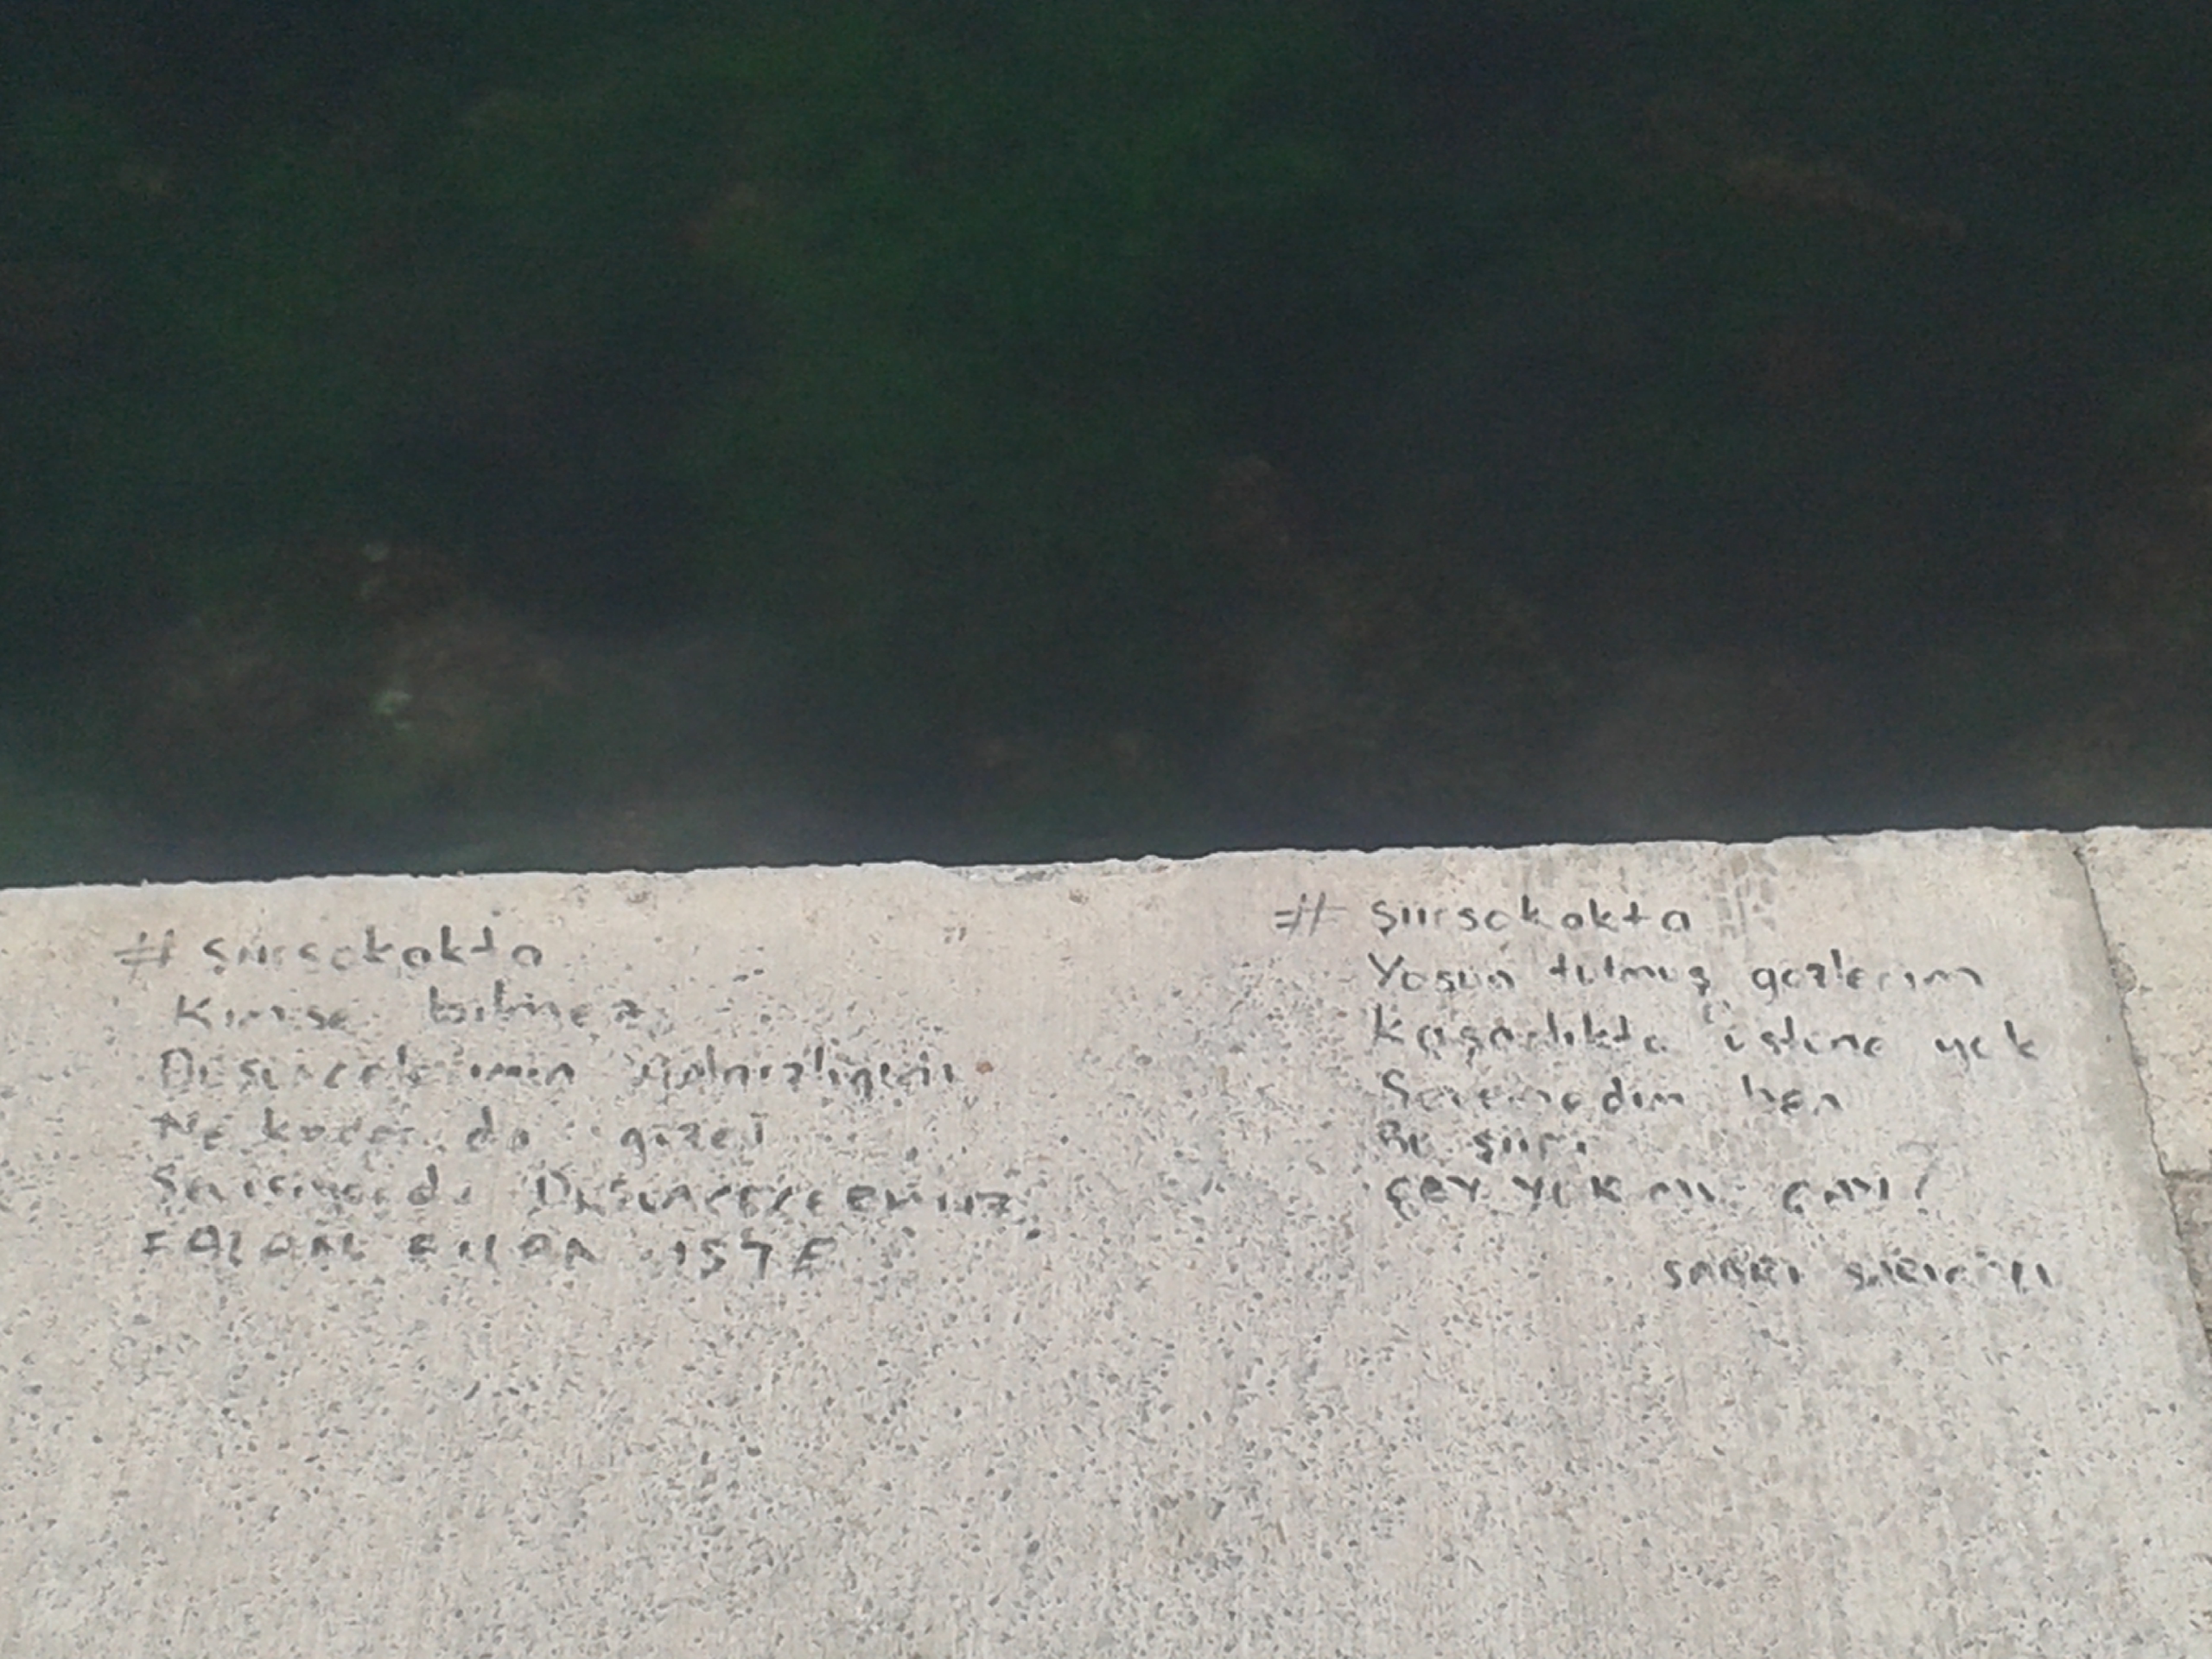 # şiirsokakta
Kimse bilmez
Düşüncelerimin yalnızlığını
Ne kadar da güzel
FALAN FİLAN İŞTE
# şiirsokakta
Yosun tutmuş gözlerim
Kaşarlıkta üstüne yok
Sevemedim ben
Bu şiiri
ÇAY YOK MU ÇAY?
SABRİ